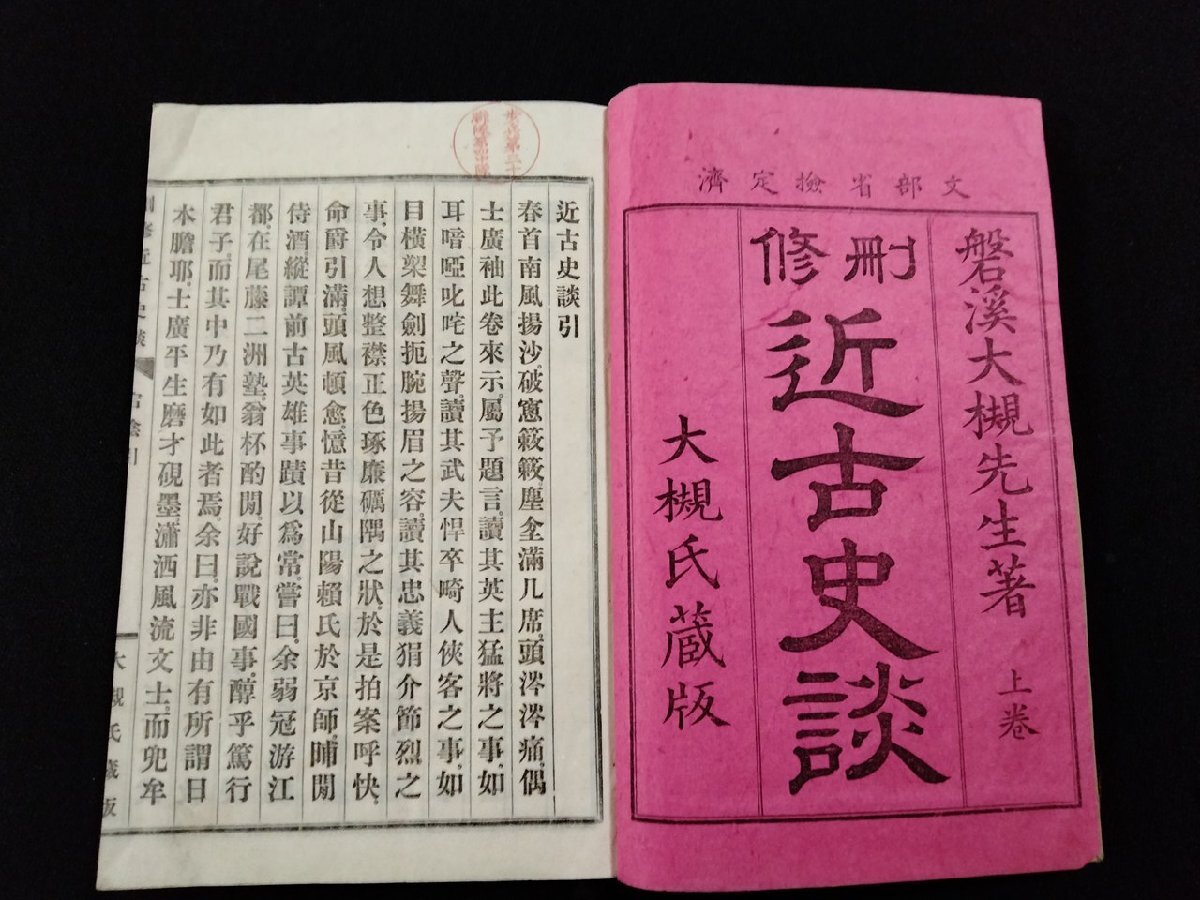 文部省検定済
磐溪大槻先生著 上巻
刪修
近古史談
大槻氏蔵版
近古史談引
春首南風揚沙。破窓簌簌。塵坌滿几席。頭涔涔痛。偶
士廣袖此卷來示。屬予題言。讀其英主猛將之事。如
耳喑啞叱咤之聲。讀其武夫悍卒畸人俠客之事。如
目橫槊舞劍扼腕揚眉之容。讀其忠義狷介節烈之
事。令人想整襟正色琢廉礪隅之狀。於是拍案呼快。
命爵引滿。頭風頓愈。憶昔從山陽賴氏於京師。晡閒
侍酒縱譚前古英雄事蹟以爲常。嘗曰。余弱冠游江
都。在尾藤二洲塾。翁杯酌閒好說戰國事。醇乎篤行
君子。而其中乃有如此者焉。余曰。亦非由有所謂日
木膽耶。士廣平生磨才硯墨。瀟洒風流文士。而兜牟
大槻氏藏版